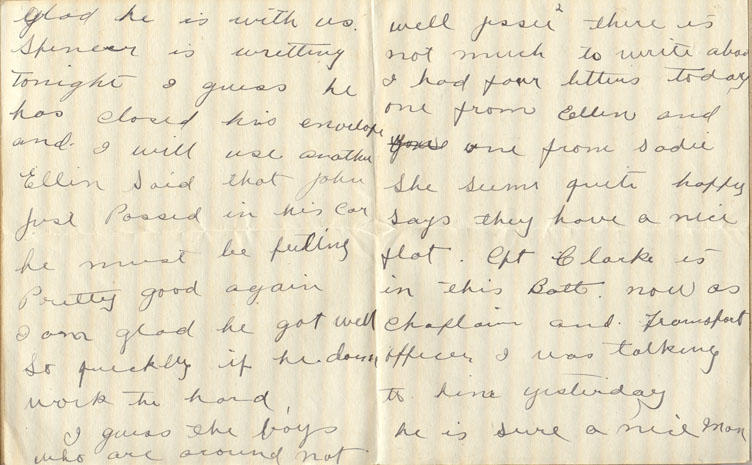 glad he is with us.
Spencer is writting
tonight I guess he
has closed his envelope
and. I will use another
Ellin said that John
just Passed in his Car
he must be feeling
Pretty good again
I am glad he got well
so quickly if he dosen
work to hard
I guess the boys
who are around not
well Jessie there is
not much to write abou
I had four letters today
one from Ellen and
one from Sadie
She seems quite happy
says they have a nice
flat. Cpt Clarke is
in this Batt. now as
Chaplain and. Transport
officer I was talking
to him yesterday
he is sure a nice man